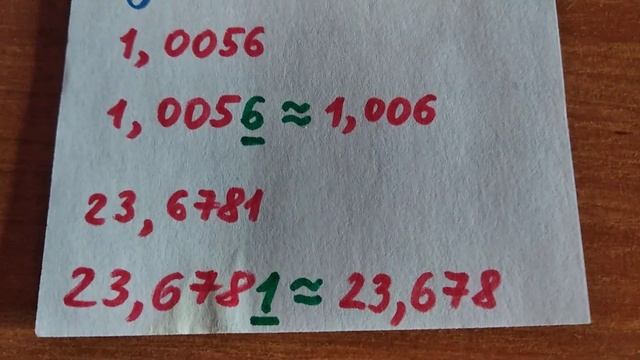 1,0056
1,0056 ≈ 1,006
23,6781
23,6781 ≈ 23,678